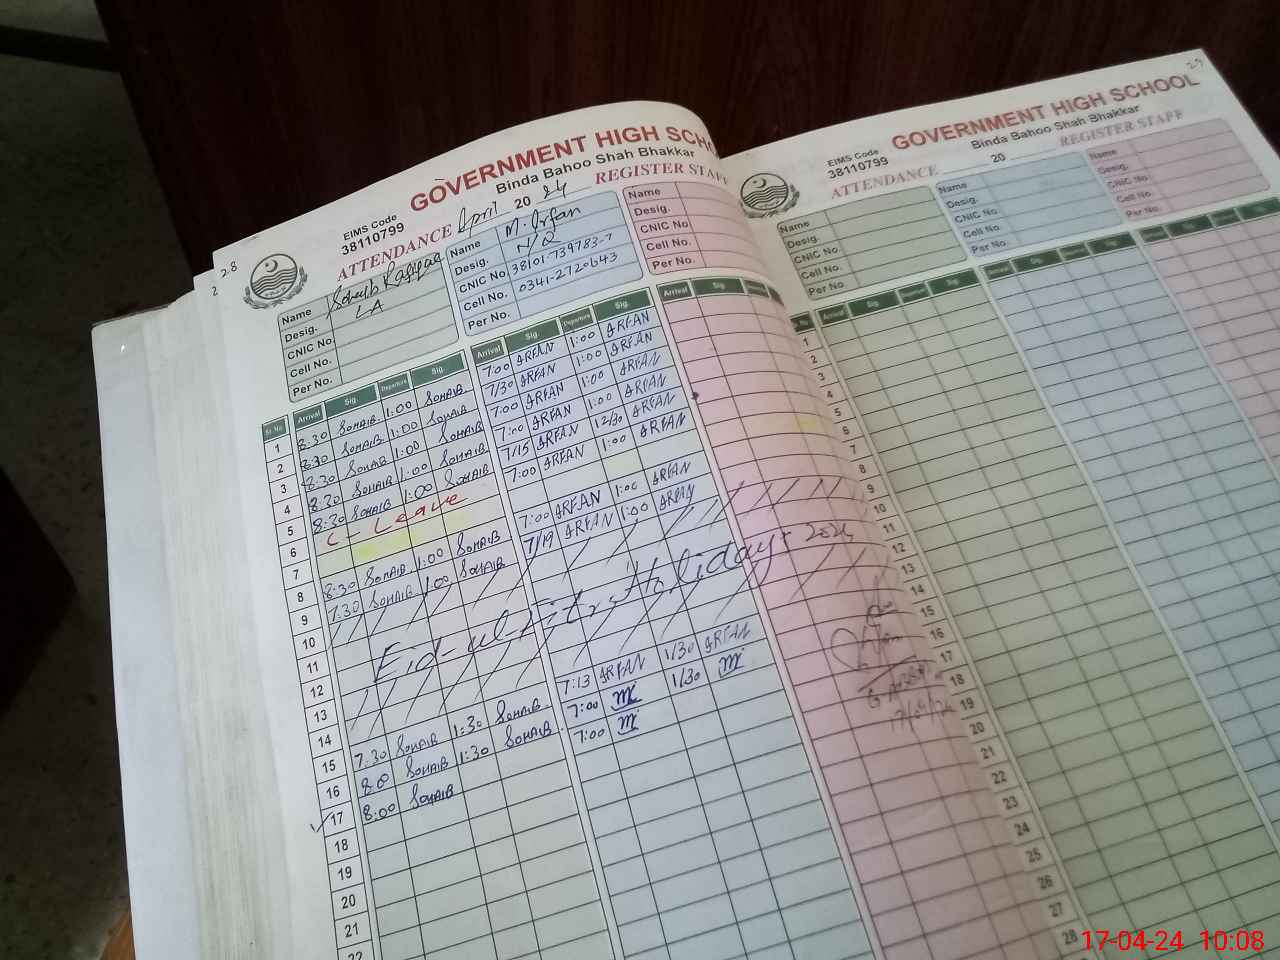 28
GOVERNMENT HIGH SCHO
Binda Bahoo Shah Bhakkar
EIMS Code
38110799
ATTENDANCE April 20 24 REGISTER STAFF
Name
Desig. LA
CNIC No
Cell No.
Per No.
Name M. Irfan
Desig. N/Q
CNIC No 38101-739783-7
Cell No. 0341-2720643
Per No.
Name
Desig.
CNIC No
Cell No.
Per No.
Sr. No Arrival Sig. Departure Sig. Arrival Sig. Departure Sig. Arrival Sig.
1 8:30 SOHAIB 1:00 SOHAIB 7:00 IRFAN 1:00 IRFAN
2 8:30 SOHAIB 1:00 SOHAIB 7/30 IRFAN 1:00 IRFAN
3 8:30 SOHAIB 1:00 SOHAIB 7:00 IRFAN 1:00 IRFAN
4 8:30 SOHAIB 1:00 SOHAIB 7:00 IRFAN 1:00 IRFAN
5 8:30 SOHAIB 1:00 SOHAIB 7/15 IRFAN 12/30 IRFAN
6 C - Leave 7:00 IRFAN 1:00 IRFAN
7
8 8:30 SOHAIB 1:00 SOHAIB 7:00 IRFAN 1:00 IRFAN
9 7:30 SOHAIB 1:00 SOHAIB 7/19 IRFAN 1:00 IRFAN
10
11
12 Eid-ul-Fitr Holidays 2024
13
14
15 7:30 SOHAIB 1:30 SOHAIB 7:13 IRFAN 1/30 IRFAN
16 8:0 SOHAIB 1:30 SOHAIB 7:00 1/30
17 8:00 SOHAIB 7:00
18
19
20
21
22
29
GOVERNMENT HIGH SCHOOL
Binda Bahoo Shah Bhakkar
EIMS Code
38110799
ATTENDANCE 20 REGISTER STAFF
Name
Desig.
CNIC No
Cell No.
Per No.
Name
Desig.
CNIC No
Cell No.
Per No.
Name
Desig.
CNIC No
Cell No.
Per No.
Arrival Sig. Departure Sig. Arrival Sig. Departure Sig. Arrival Sig.
1
2
3
4
5
6
7
8
9
10
11
12
13
14
15
16
17
18
19
20
21
22
23
24
25
26
27
28
17-04-24 10:08